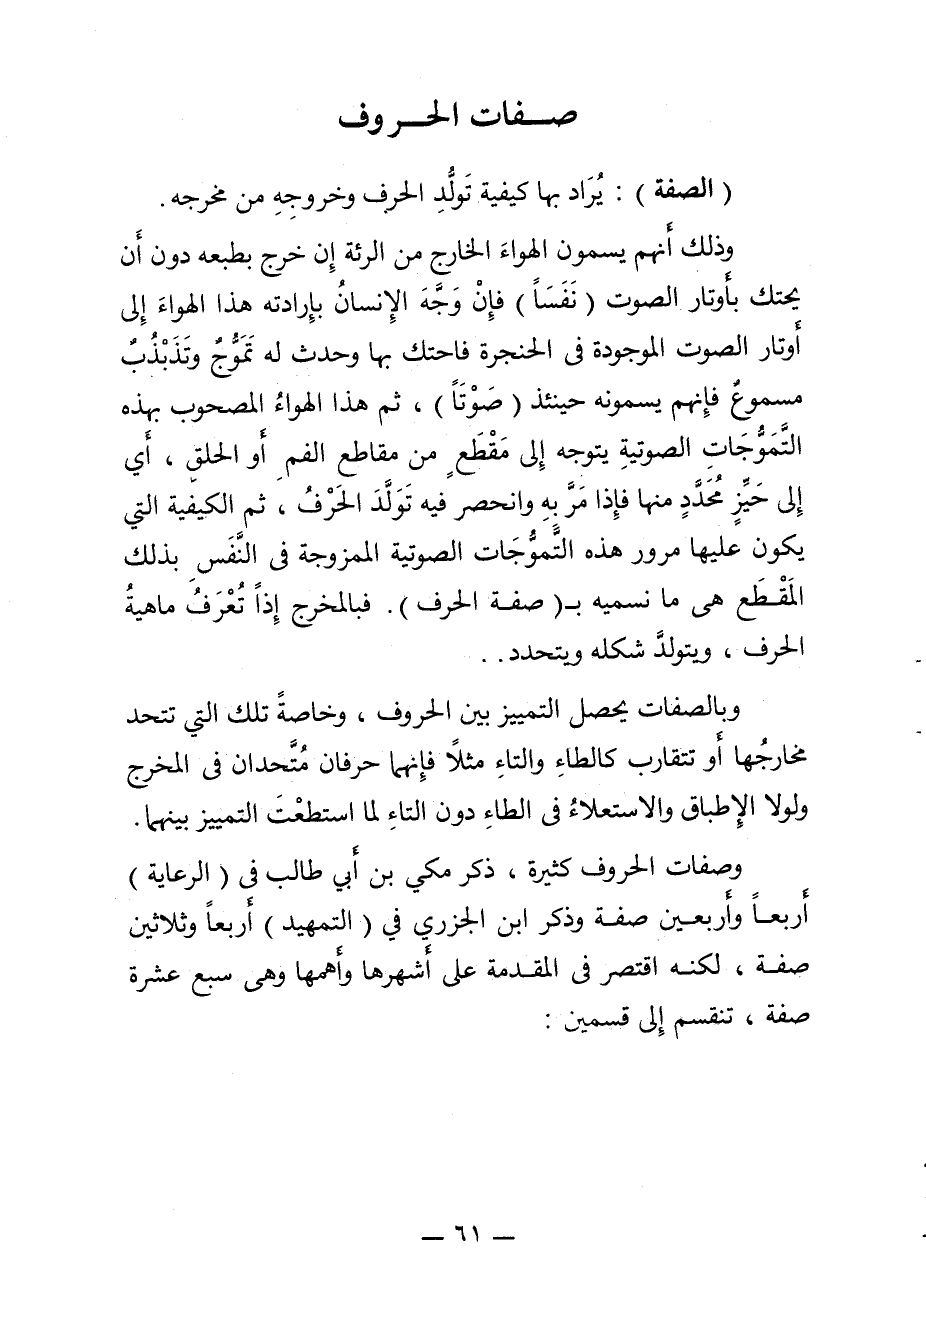 صفات الحروف
( الصفة ) : يُرَاد بها كيفية تَولُّدِ الحرف وخروجِهِ من مخرجه .
وذلك أَنهم يسمون الهواءَ الخارج من الرئة إن خرج بطبعه دون أَن
يحتك بأَوتار الصوت ( نَفَسَاً ) فإنْ وَجَّهَ الإِنسانُ بإِرادته هذا الهواءَ إِلى
أَوتار الصوت الموجودة فى الحنجرة فاحتك بها وحدث له تَمَوُّجٌ وتَذَبْذُبٌ
مسموعٌ فإِنهم يسمونه حينئذ ( صَوْتَاً ) ، ثم هذا الهواءُ المصحوب بهذه
التَّمَوُّجَاتِ الصوتيةِ يتوجه إِلى مَقْطَعٍ من مقاطع الفمِ أَو الحلقِ ، أَي
إِلى حَيِّزٍ مُحَدَّدٍ منها فإِذا مَرَّ بِهِ وانحصر فيه تَوَلَّدَ الحَرْفُ ، ثم الكيفية التي
يكون عليها مرور هذه التَّموُّجَات الصوتية الممزوجة فى النَّفَسِ بذلك
المَقْطَعِ هى ما نسميه بـ( صفة الحرف ) . فبالمخرج إِذاً تُعْرَفُ ماهيةُ
الحرف ، ويتولدَّ شكله ويتحدد . .
وبالصفات يحصل التمييز بين الحروف ، وخاصةً تلك التي تتحد
مخارجُها أَو تتقارب كالطاءِ والتاءِ مثلًا فإِنهما حرفان مُتَّحدان فى المخرج
ولولا الإِطباق والاستعلاءُ فى الطاءِ دون التاءِ لما استطعْتَ التمييز بينهما .
وصفات الحروف كثيرة ، ذكر مكي بن أَبي طالب فى ( الرعاية )
أَربعاً وأَربعين صفة وذكر ابن الجزري في ( التمهيد ) أَربعاً وثلاثين
صفة ، لكنه اقتصر فى المقدمة على أَشهرها وأَهمها وهى سبع عشرة
صفة ، تنقسم إِلى قسمين :
— ٦١ —